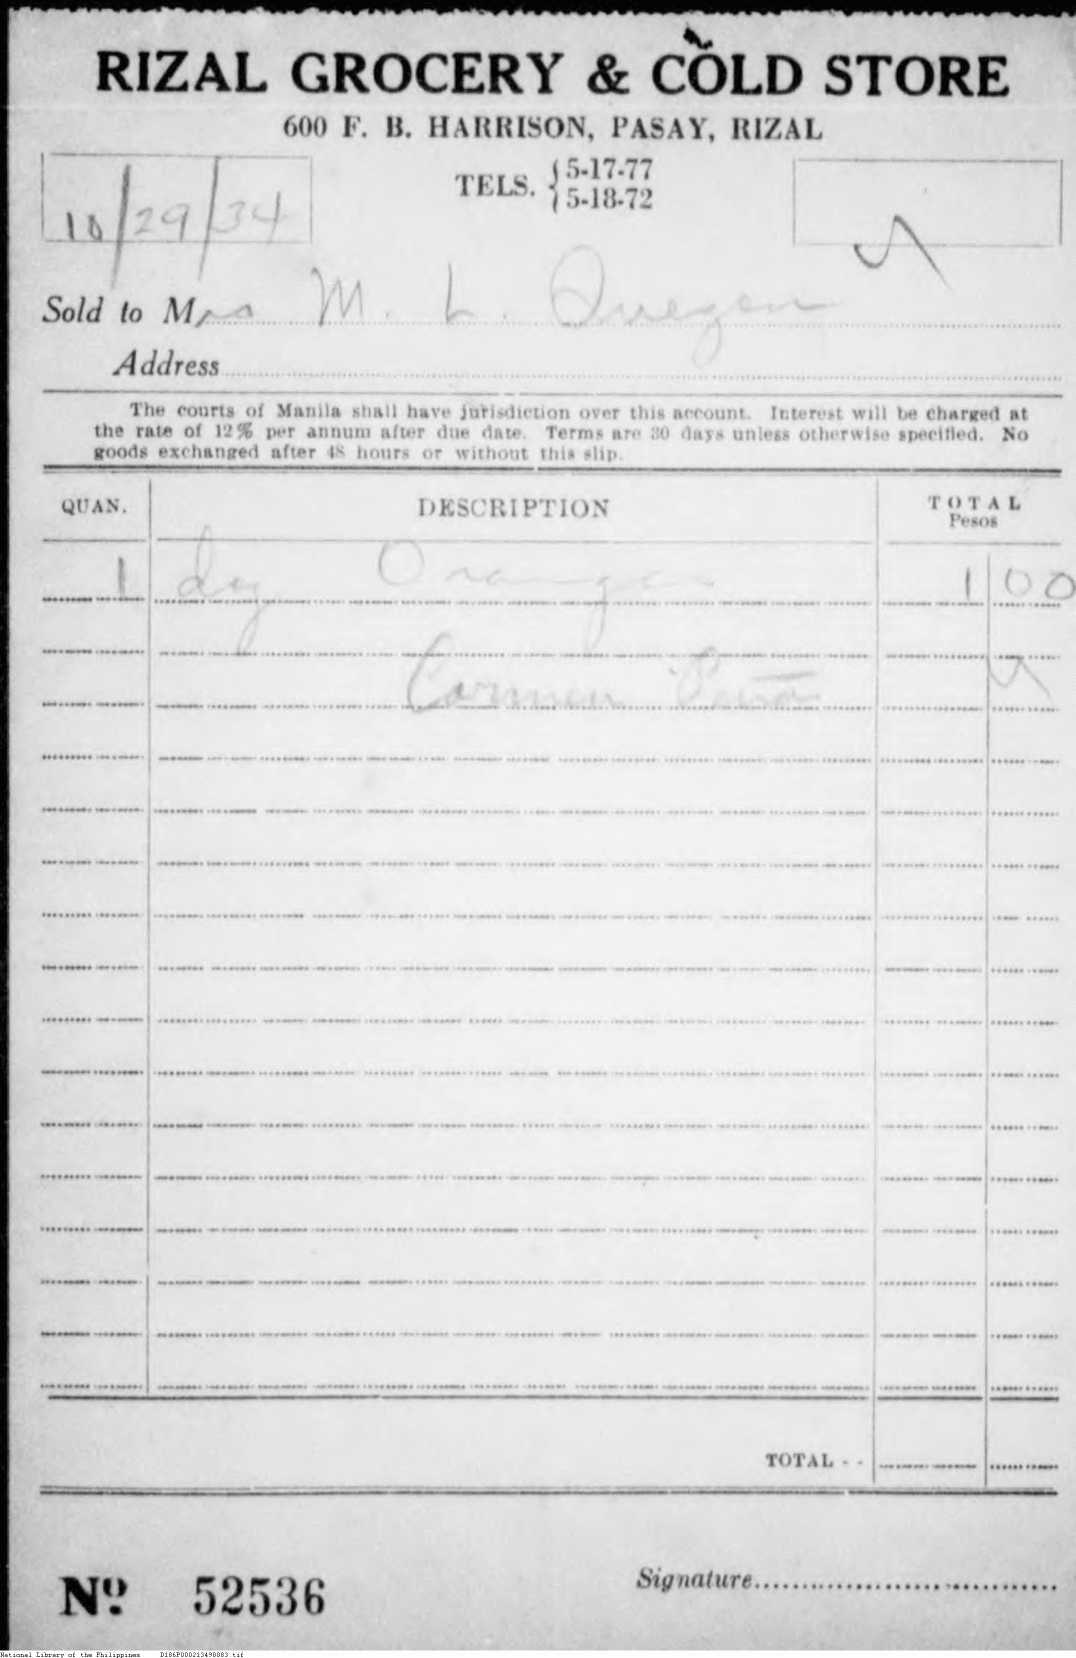 RIZAL GROCERY & COLD STORE
600 F. B. HARRISON, PASAY, RIZAL
TELS. { 5-17-77
5-18-72
10/29/34
Sold to Mrs M. L. Quezon
Address
The courts of Manila shall have jurisdiction over this account. Interest will be charged at
the rate of 12% per annum after due date. Terms are 30 days unless otherwise specified. No
goods exchanged after 48 hours or without this slip.
QUAN. DESCRIPTION TOTAL
Pesos
1 dz Oranges 1 00
Carmen
TOTAL - -
Signature
Nº. 52536
National Library of the Philippines D186P000213498083.tif